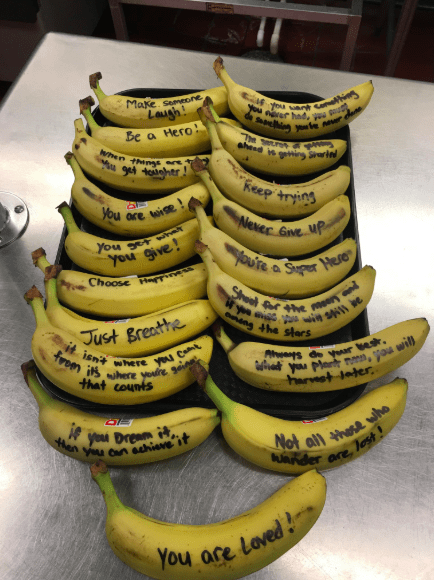 Make someone
Laugh!
Be a Hero!
When things are t
you get tougher!
You are wise!
You get what
you give!
Choose Happiness
Just Breathe
it isn't where you come
from its where you're going
that counts
if you Dream it,
then you can achieve it
if you want something
you never had, you must
do something you've never done
The secret of getting
ahead is getting started
Keep trying
Never Give up
You're a Super Hero
Shoot for the moon and
if you miss you will still be
among the stars
Always do your best.
What you plant now, you will
harvest later.
Not all those who
wander are, lost!
You are Loved!